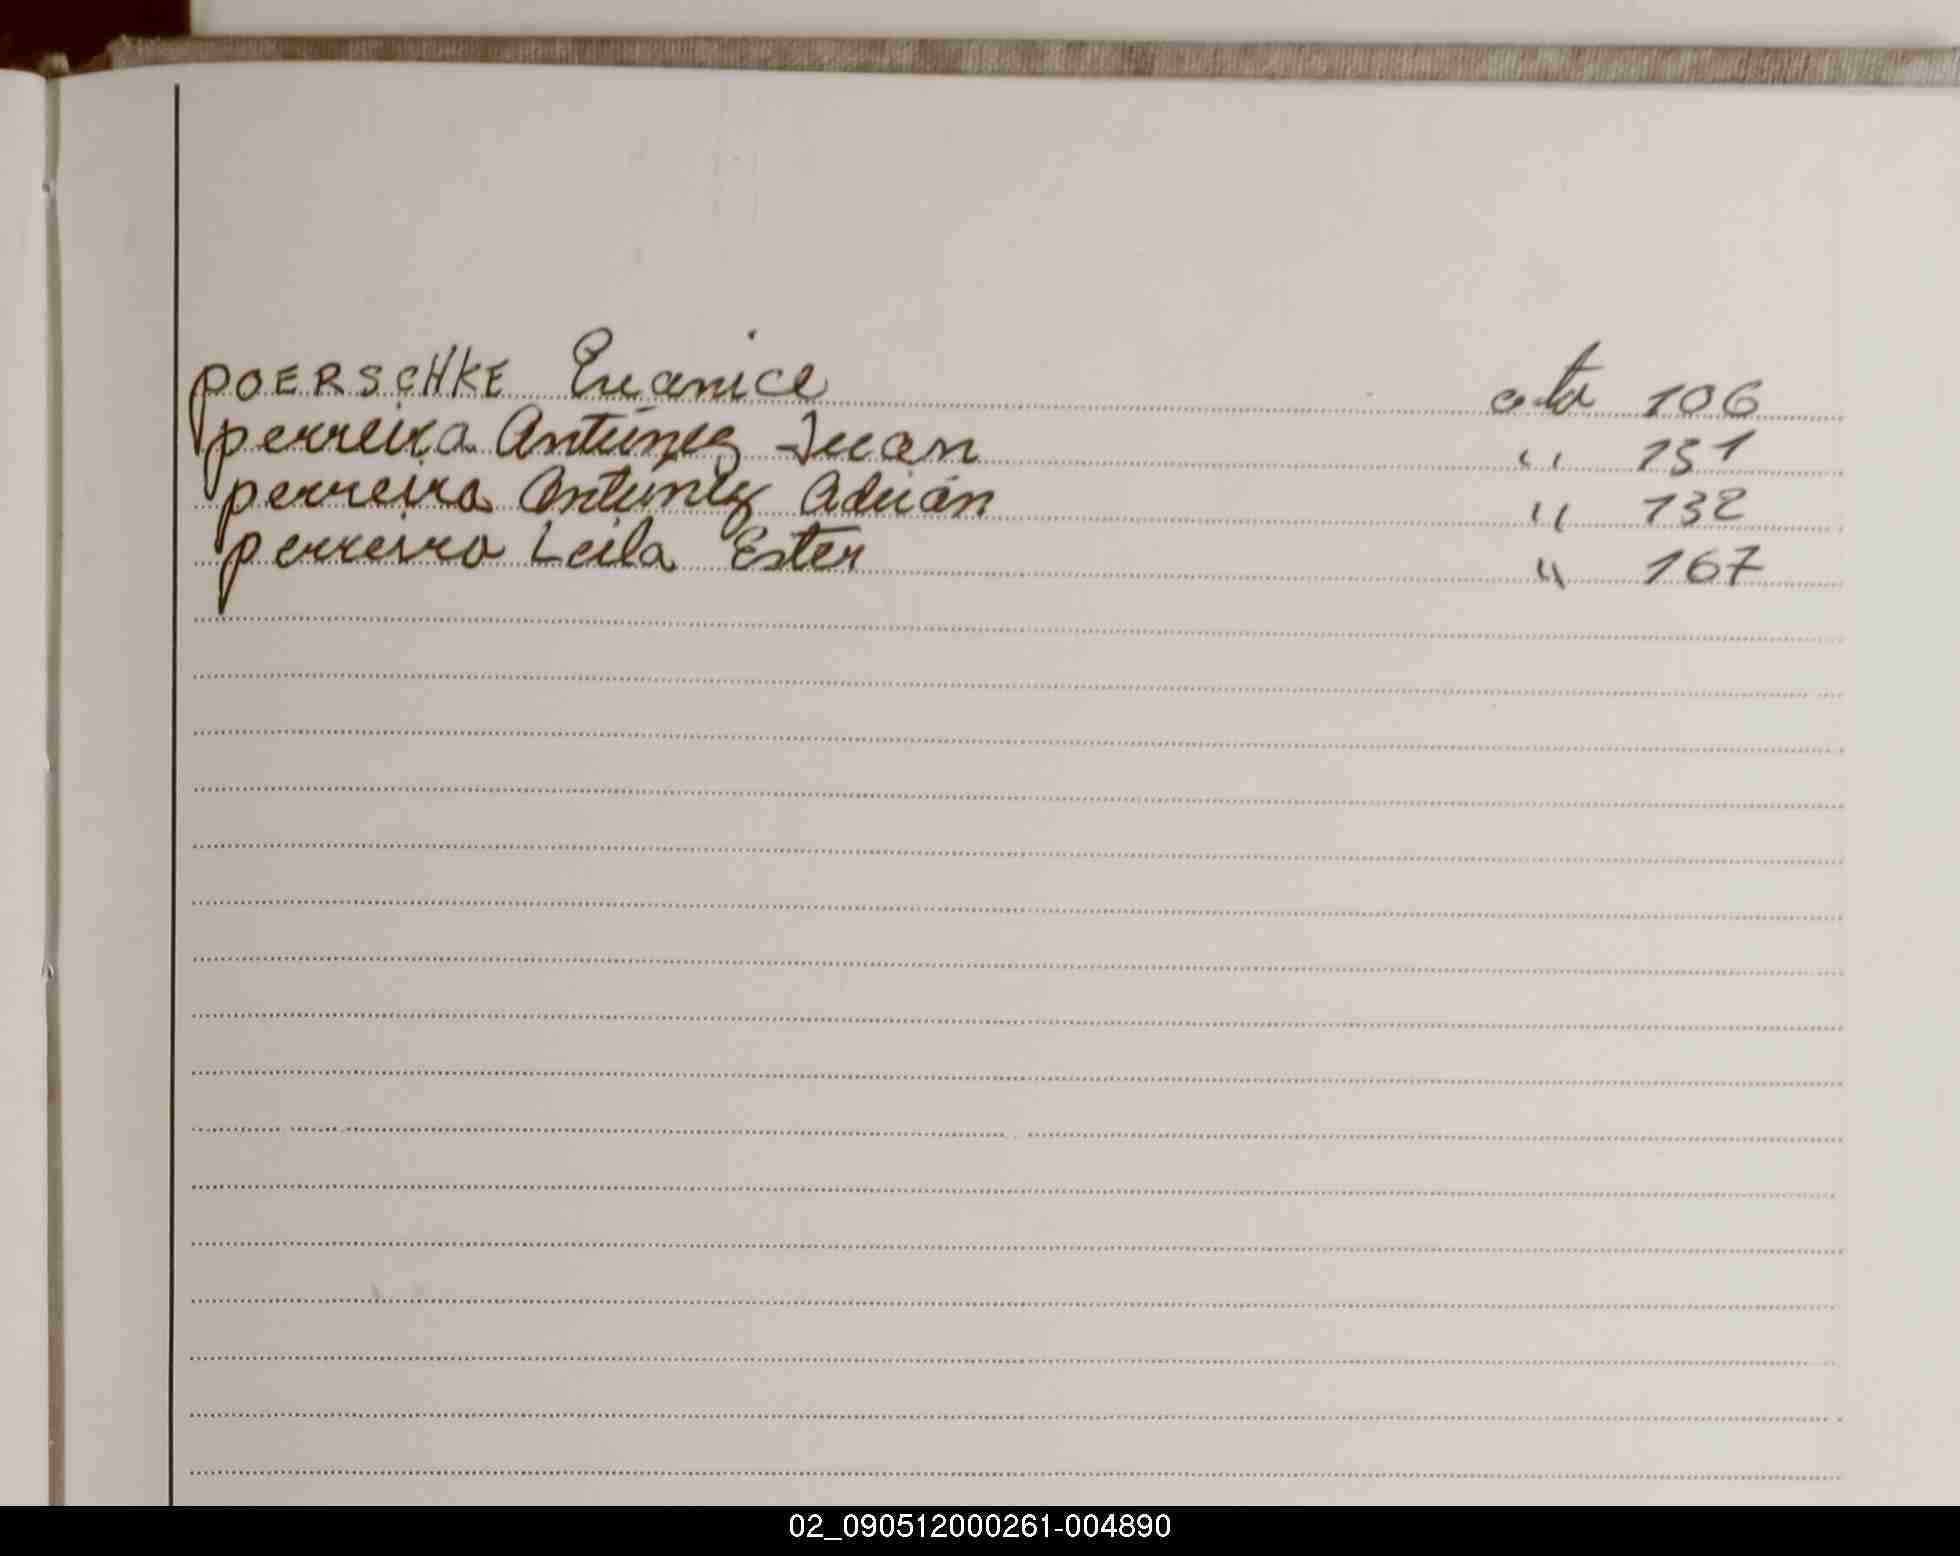 POERSCHKE Eucanice acta 106
perreira Antúnez Juan " 131
perreira Antunez Adrián " 132
perreira Leila Ester " 167
02_090512000261-004890